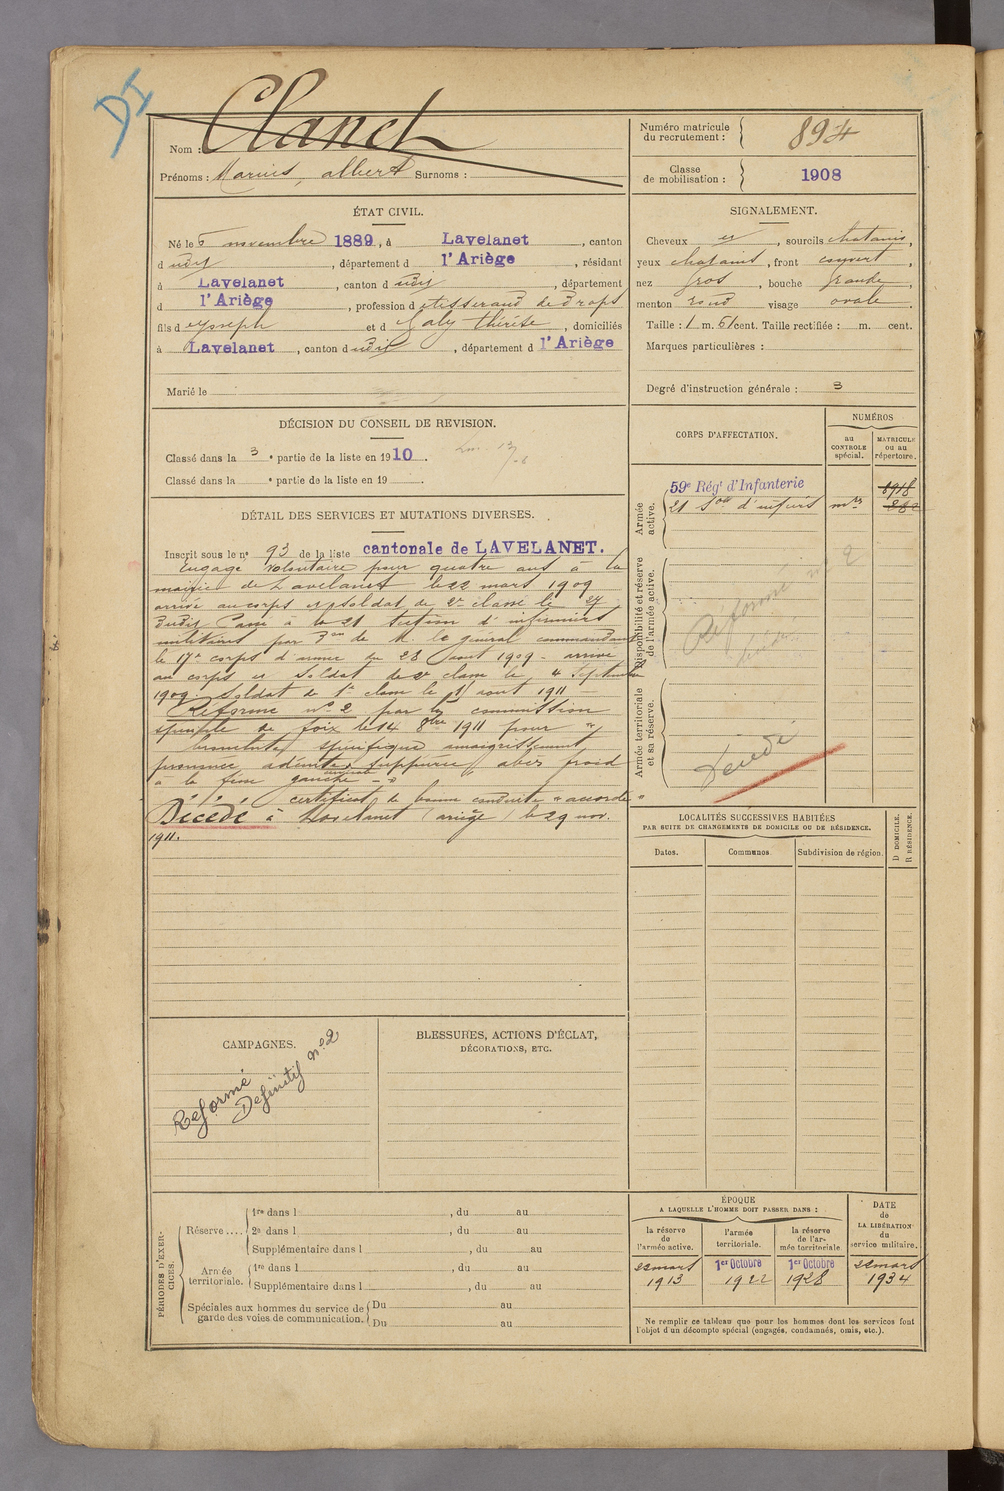 DI
Nom : Clanet
Prénoms : Marius, Albert Surnoms :
Numéro matricule du recrutement : 894
Classe de mobilisation : 1908
ÉTAT CIVIL.
Né le 5 novembre 1889, à Lavelanet, canton
d udit, département d l'Ariège, résidant
à Lavelanet, canton d udit, département
d l'Ariège, profession d tisserand de draps
fils d Joseph et d Galy Thérèse, domiciliés
à Lavelanet, canton d udit, département d l'Ariège
Marié le
SIGNALEMENT.
Cheveux et, sourcils chatains,
yeux chatains, front couvert,
nez gros, bouche grande,
menton rond visage ovale.
Taille : 1 m. 61 cent. Taille rectifiée : m. cent.
Marques particulières :
Degré d'instruction générale : 3
DÉCISION DU CONSEIL DE REVISION.
Classé dans la 3e partie de la liste en 1910.
Classé dans la e partie de la liste en 19 .
DÉTAIL DES SERVICES ET MUTATIONS DIVERSES.
Inscrit sous le no 93 de la liste cantonale de LAVELANET.
Engagé volontaire pour quatre ans à la
mairie de Lavelanet le 22 mars 1909
arrivé au corps et soldat de 2e classe le 24
dudit. Passé à la 21 section d'infirmiers
militaires par Don de M. le général commandant
le 17e corps d'armée du 28 août 1909 - arrivé
au corps et soldat de 2e classe le 4 Septembre
1909. Soldat de 1e classe le août 1911 —
Réformé no 2 par la commission
spéciale de foix le 14 8bre 1911 pour "
bronchite spécifique amaigrissement
prononcé, adénite suppurée abcès froid
à la fesse gauche - "
certificat de bonne conduite "accordé"
Décédé à Lavelanet (ariège) le 29 nov.
1911.
CORPS D'AFFECTATION.
NUMÉROS
au CONTROLE spécial.
MATRICULE ou au répertoire.
Armée active.
59e Régt d'Infanterie
21 Son d'infirs mres
Disponibilité et réserve de l'armée active.
Réformé no 2
Armée territoriale et sa réserve.
Décédé
LOCALITÉS SUCCESSIVES HABITÉES
PAR SUITE DE CHANGEMENTS DE DOMICILE OU DE RÉSIDENCE.
Dates.
Communes
Subdivision de région.
D DOMICILE.
R RÉSIDENCE.
CAMPAGNES.
Réformé
Définitif no 2
BLESSURES, ACTIONS D'ÉCLAT,
DÉCORATIONS, ETC.
PÉRIODES D'EXERCICES.
Réserve.... 1re dans l , du au
2e dans l , du au
Supplémentaire dans l , du au
Armée territoriale. 1re dans l , du au
Supplémentaire dans l , du au
Spéciales aux hommes du service de garde des voies de communication. Du au
Du au
ÉPOQUE
A LAQUELLE L'HOMME DOIT PASSER DANS :
la réserve de l'armée active.
l'armée territoriale.
la réserve de l'armée territoriale
DATE de LA LIBÉRATION du service militaire.
22 mars 1913
1er Octobre 1922
1er Octobre 1928
22 mars 1934
Ne remplir ce tableau que pour les hommes dont les services font
l'objet d'un décompte spécial (engagés, condamnés, omis, etc.).